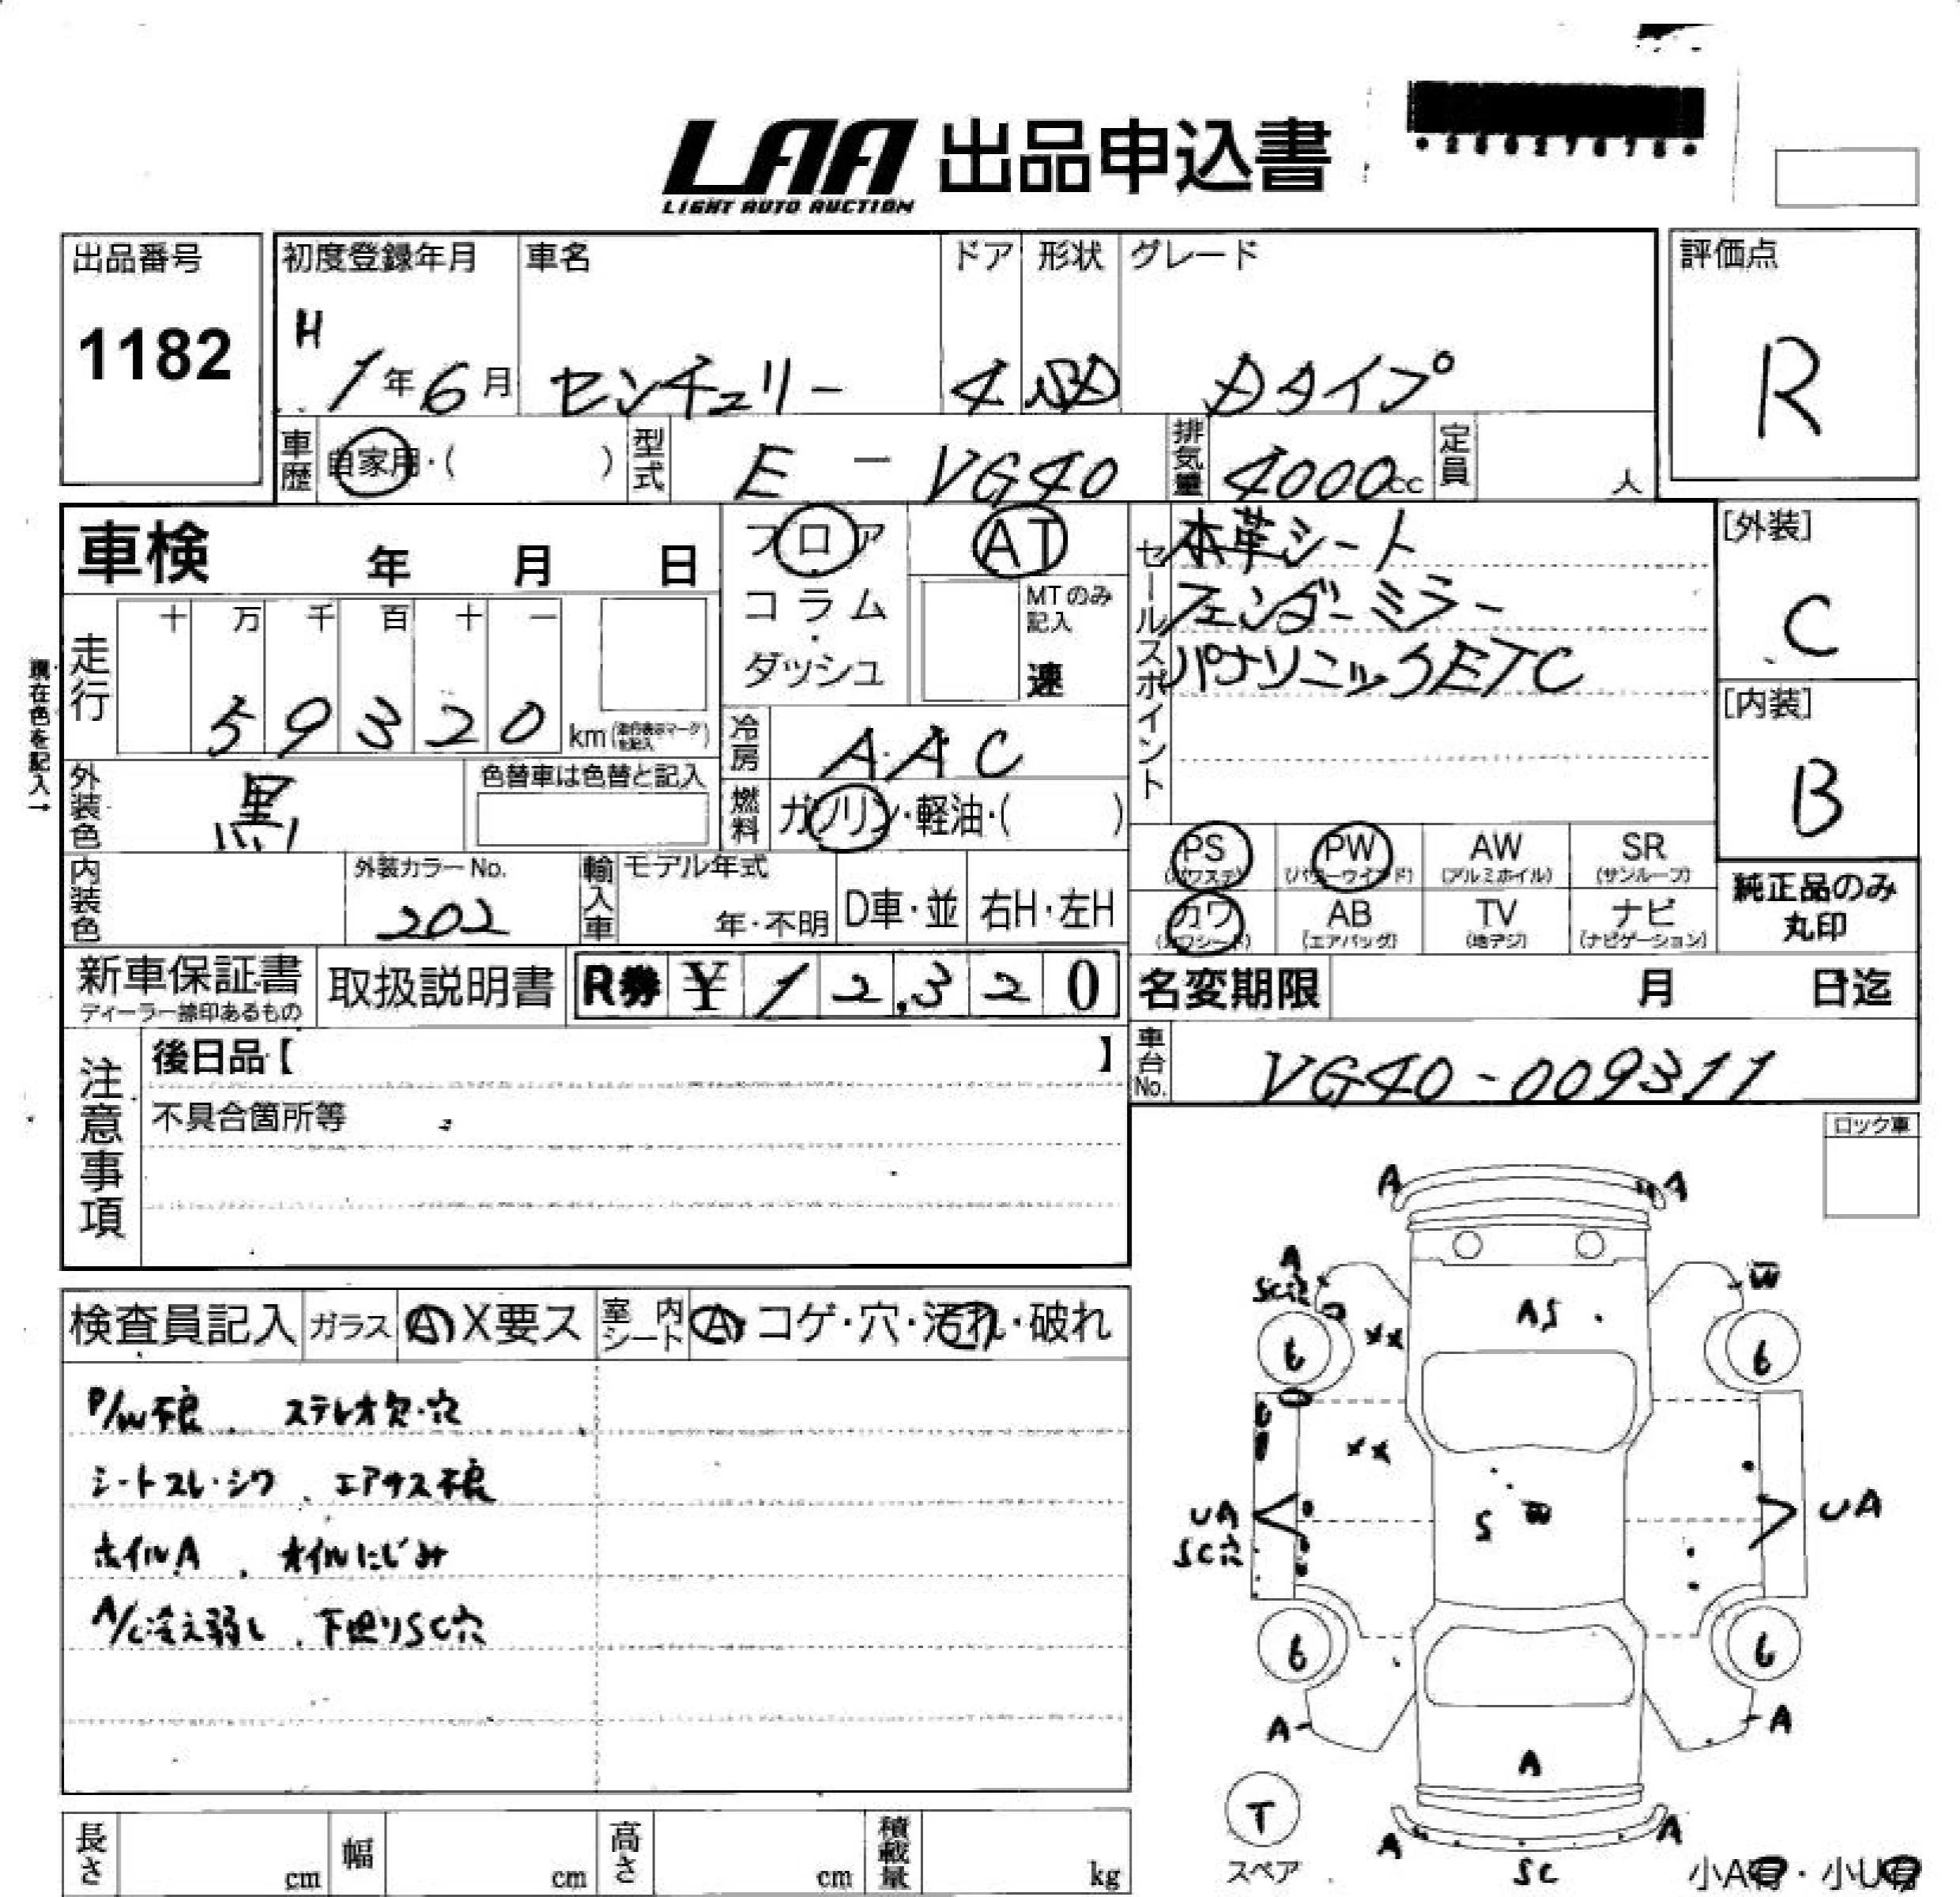 LAA 出品申込書
LIGHT AUTO AUCTION
出品番号
1182
初度登録年月
H
1年6月
車名
センチュリー
ドア
4
形状
SD
グレード
Dタイプ
評価点
R
車歴
自家用・( )
型式
E - VG40
排気量
4000cc
定員
人
車検 年 月 日
フロア
コラム
・
ダッシュ
AT
MTのみ
記入
速
セールスポイント
本革シート
フェンダーミラー
パナソニックETC
[外装]
C
[内装]
B
現在色を記入→
走行
十 万 千 百 十 一
5 9 3 2 0
km
冷房
AAC
外装色
黒
色替車は色替と記入
燃料
ガソリン・軽油・( )
PS
(パワステ)
PW
(パワーウインド)
AW
(アルミホイル)
SR
(サンルーフ)
カワ
(カワシート)
AB
(エアバッグ)
TV
(地デジ)
ナビ
(ナビゲーション)
純正品のみ
丸印
内装色
外装カラーNo.
202
輸入車
モデル年式
年・不明
D車・並
右H・左H
新車保証書
ディーラー捺印あるもの
取扱説明書
R券 ¥ 1 2,3 2 0
名変期限 月 日迄
車台No.
VG40-009311
注意事項
後日品【 】
不具合箇所等
ロック車
検査員記入
ガラス
A X要ス
室内シート
A・コゲ・穴・汚れ・破れ
P/W不良、ステレオ欠・穴
シートスレ・シワ、エアサス不良
ホイルA、オイルにじみ
A/C冷え弱し、下廻りSC穴
A A
A
W
AS
XX
6 6
XX
UA
SC穴
S W
UA
6 6
A A
A
T
スペア
A A
SC
小A有・小U有
長さ cm
幅 cm
高さ cm
積載量 kg